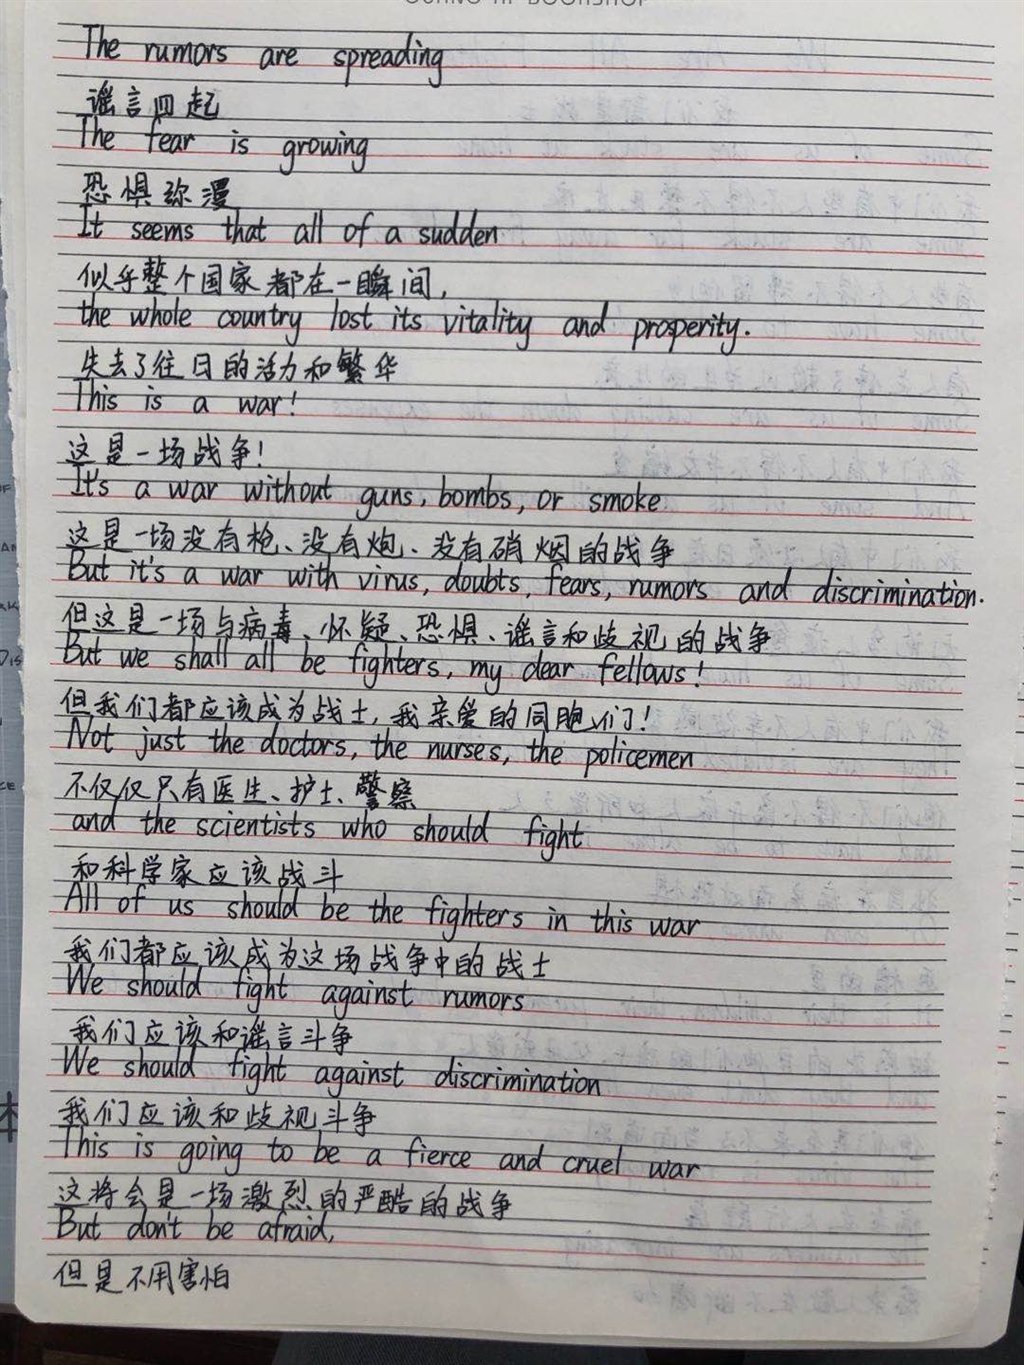 The rumors are spreading
谣言四起
The fear is growing
恐惧弥漫
It seems that all of a sudden
似乎整个国家都在一瞬间,
the whole country lost its vitality and prosperity.
失去了往日的活力和繁华
This is a war!
这是一场战争!
It's a war without guns, bombs, or smoke
这是一场没有枪、没有炮、没有硝烟的战争
But it's a war with virus, doubts, fears, rumors and discrimination.
但这是一场与病毒、怀疑、恐惧、谣言和歧视的战争
But we shall all be fighters, my dear fellows!
但我们都应该成为战士,我亲爱的同胞们!
Not just the doctors, the nurses, the policemen
不仅仅只有医生、护士、警察
and the scientists who should fight
和科学家应该战斗
All of us should be the fighters in this war
我们都应该成为这场战争中的战士
We should fight against rumors
我们应该和谣言斗争
We should fight against discrimination
我们应该和歧视斗争
This is going to be a fierce and cruel war
这将会是一场激烈的严酷的战争
But don't be afraid,
但是不用害怕